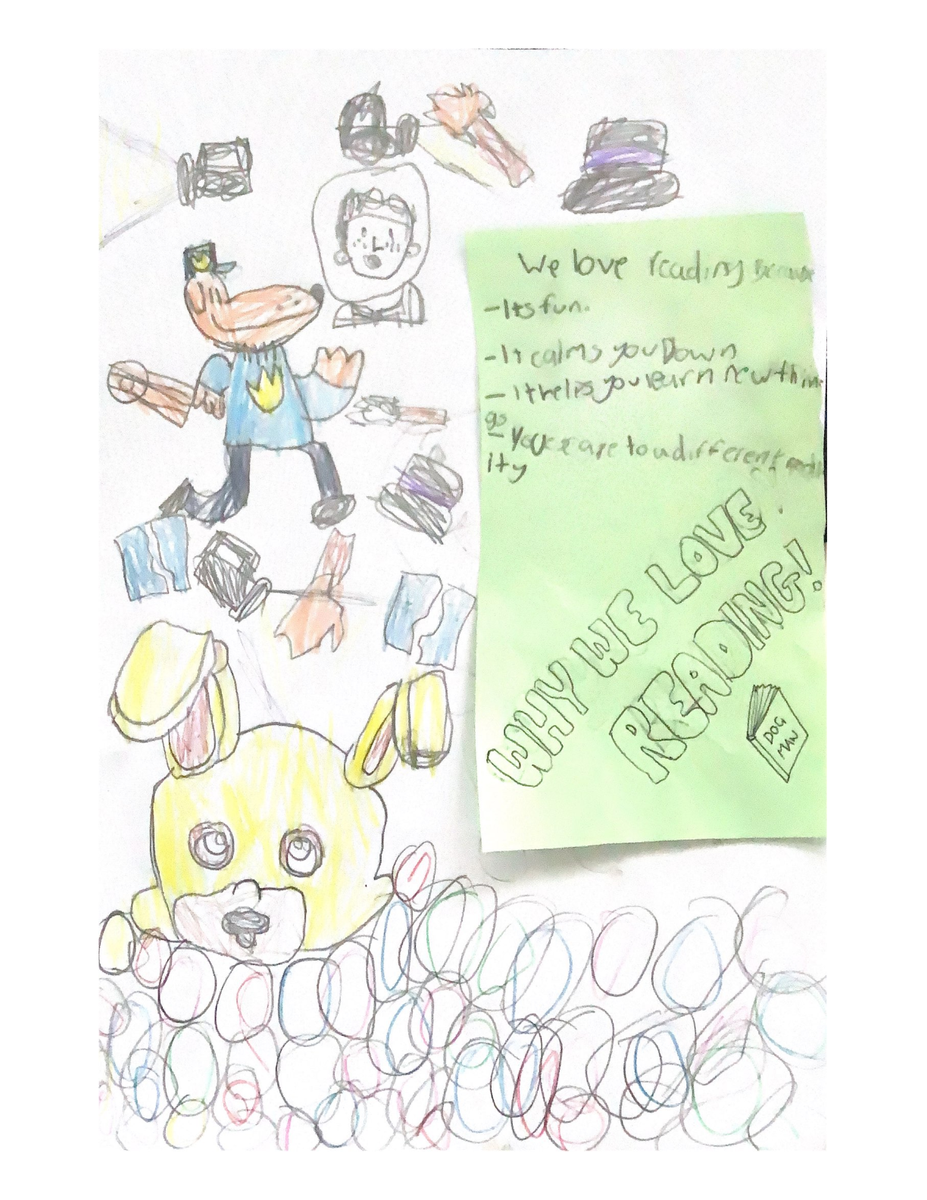 We love reading Because
-Its fun.
-It calms you Down
-It helps you learn new thin
gs
- You
to a different
ity
WHY WE LOVE
READING!
DOG
MAN